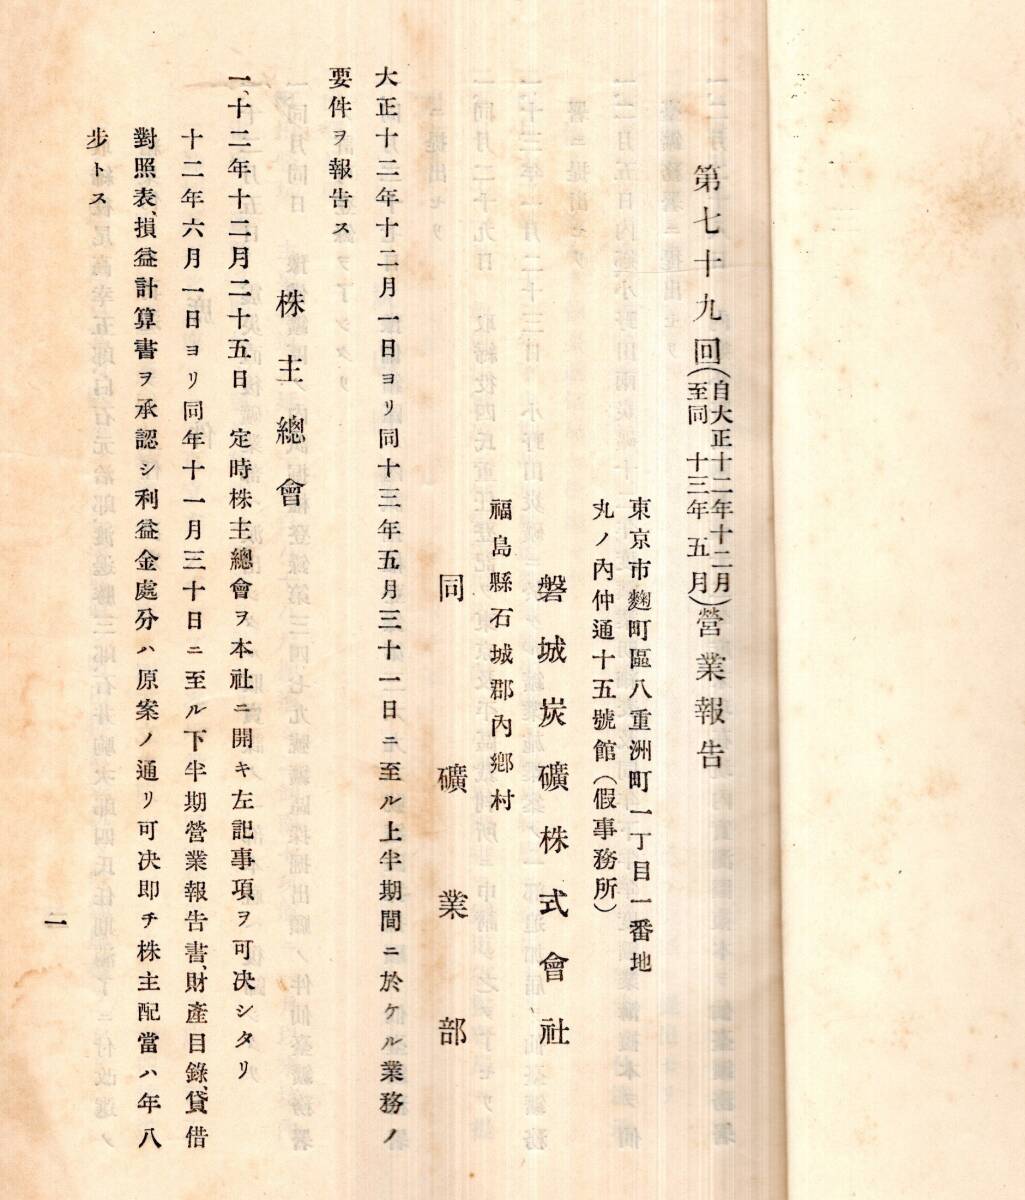 第七十九回(自大正十二年十二月至同十三年五月)營業報告
東京市麴町區八重洲町一丁目一番地
丸ノ內仲通十五號館(假事務所)
磐城炭礦株式會社
福島縣石城郡內鄕村
同礦業部
大正十二年十二月一日ヨリ同十三年五月三十一日ニ至ル上半期間ニ於ケル業務ノ
要件ヲ報吿ス
株主總會
一、十二年十二月二十五日 定時株主總會ヲ本社ニ開キ左記事項ヲ可決シタリ
十二年六月一日ヨリ同年十一月三十日ニ至ル下半期營業報告書、財產目錄、貸借
對照表、損益計算書ヲ承認シ利益金處分ハ原案ノ通リ可決即チ株主配當ハ年八
步トス
一